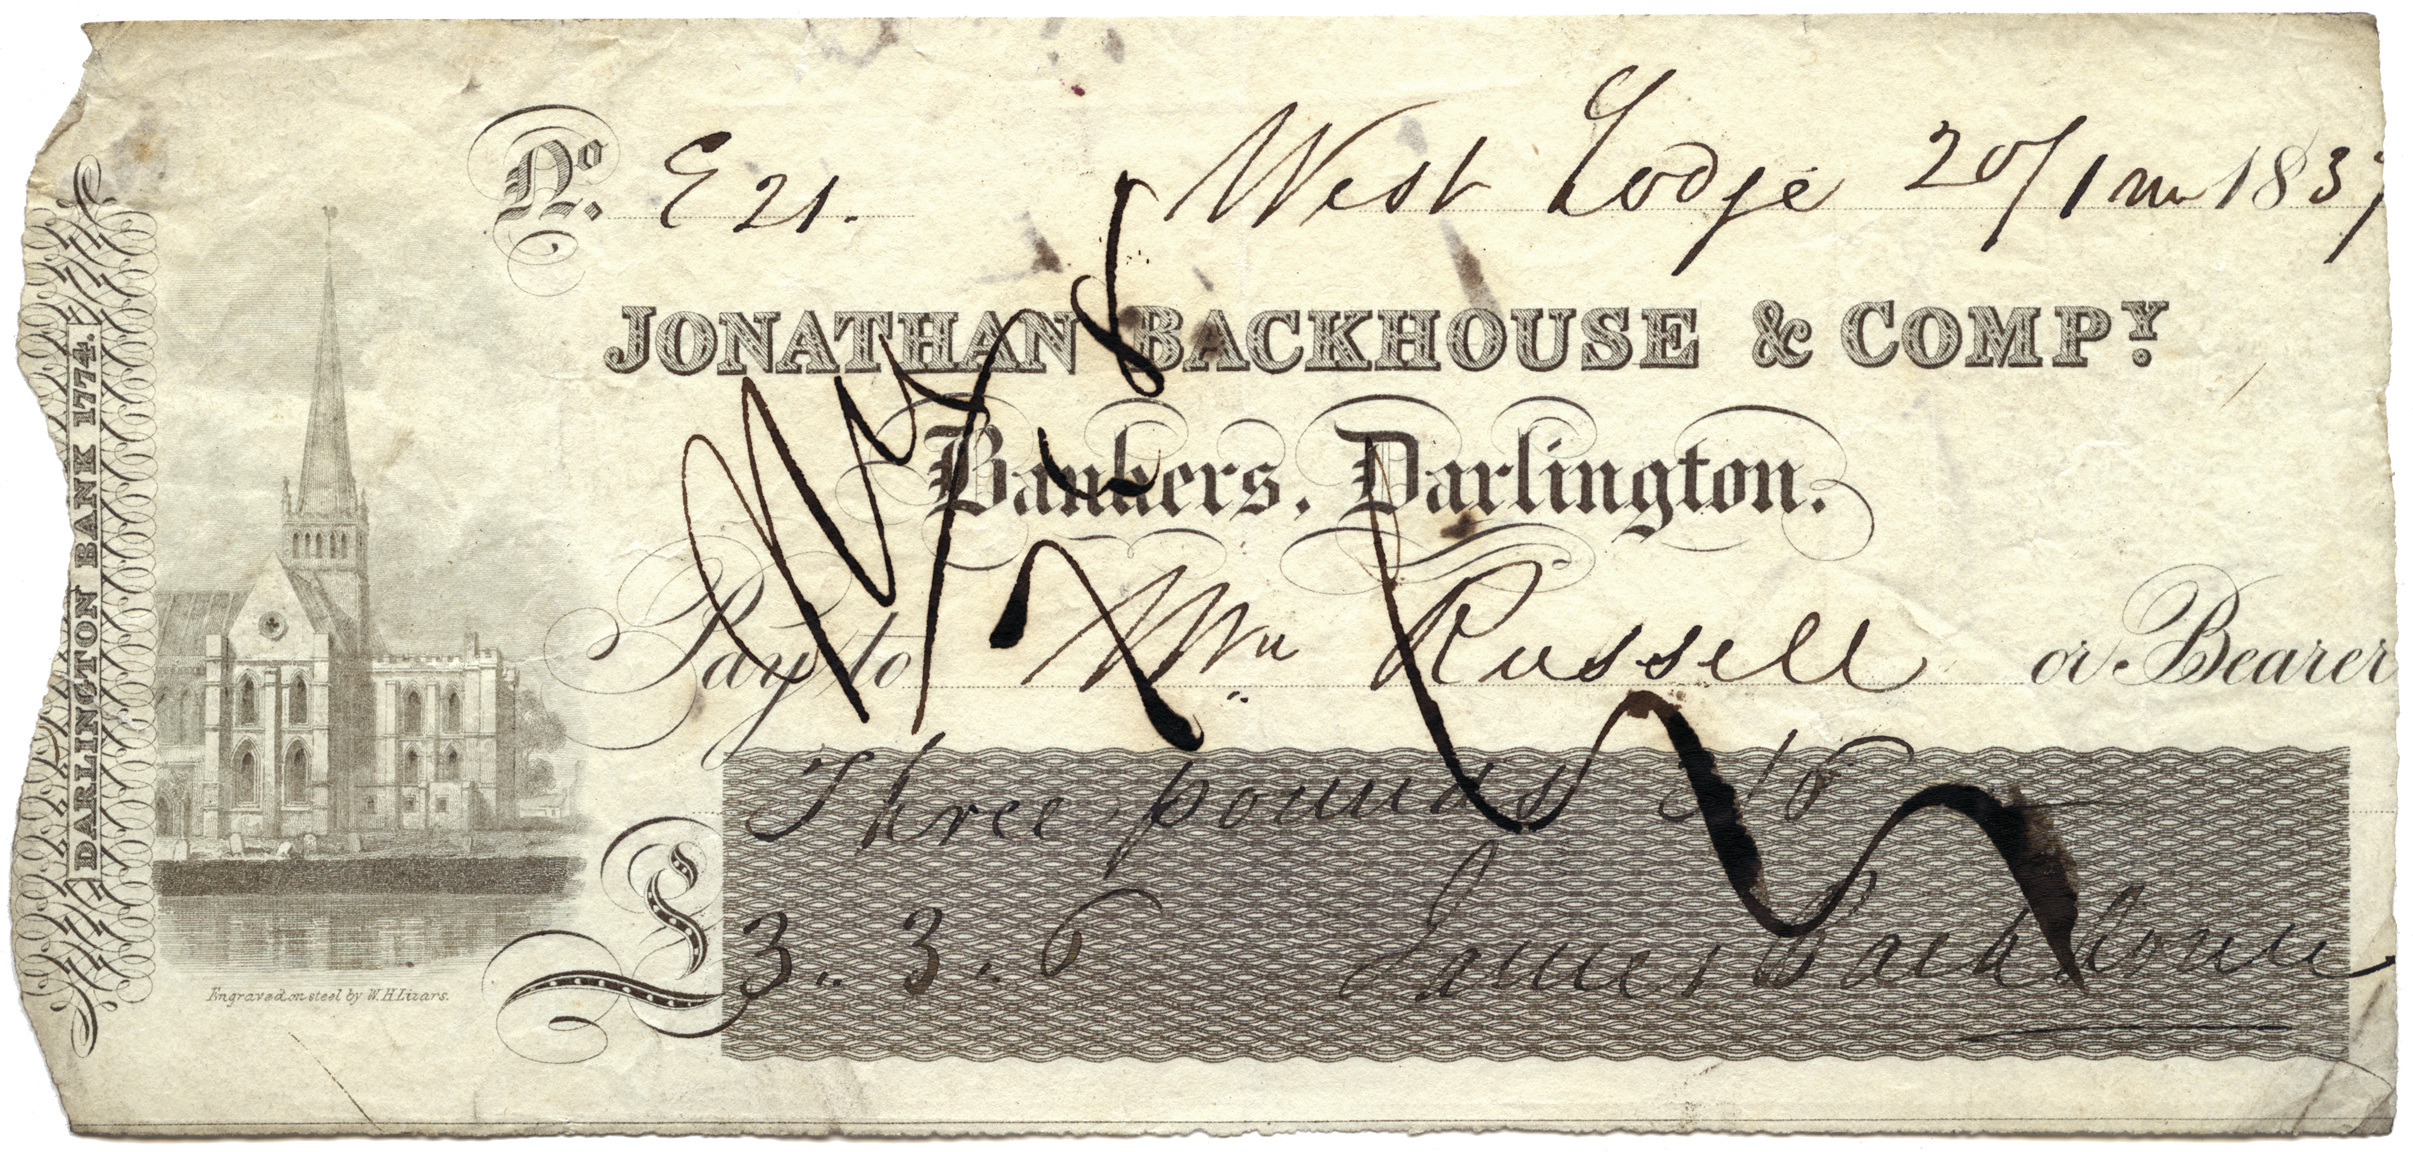 No. E 21. West Lodge 20/1 mo 1837
JONATHAN BACKHOUSE & COMPY.
Bankers, Darlington.
Pay to Wm Russell or Bearer
Three pounds 3/6
£ 3.. 3.. 6 James Backhouse
DARLINGTON BANK 1774.
Engraved on steel by W. H. Lizars.